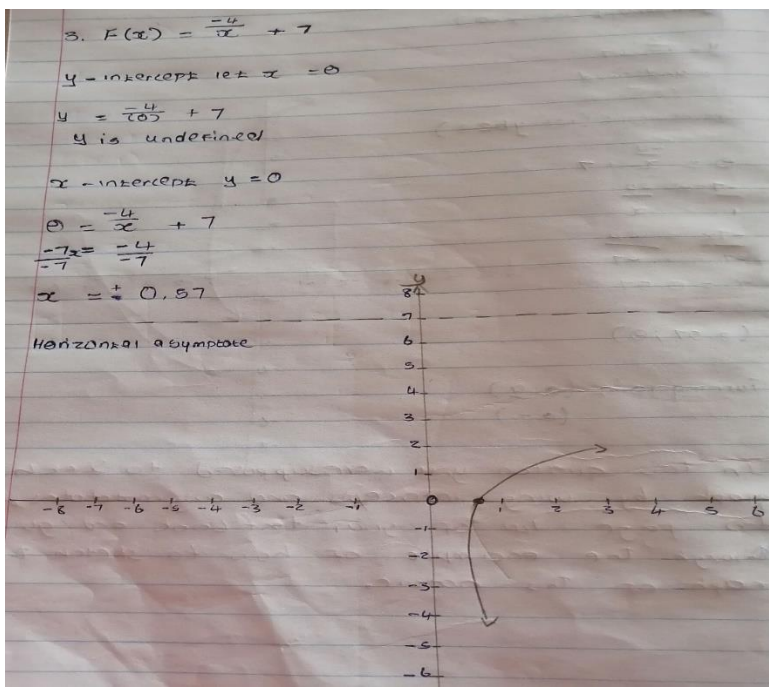 3. F(x) = -4/x + 7
y-intercept let x = 0
y = -4/(0) + 7
y is undefined
x-intercept y = 0
0 = -4/x + 7
-7x/-7 = -4/-7
x = ± 0,57
Horizontal asymptote
y
8
7
6
5
4
3
2
1
-8 -7 -6 -5 -4 -3 -2 -1 0 1 2 3 4 5 6
-1
-2
-3
-4
-5
-6